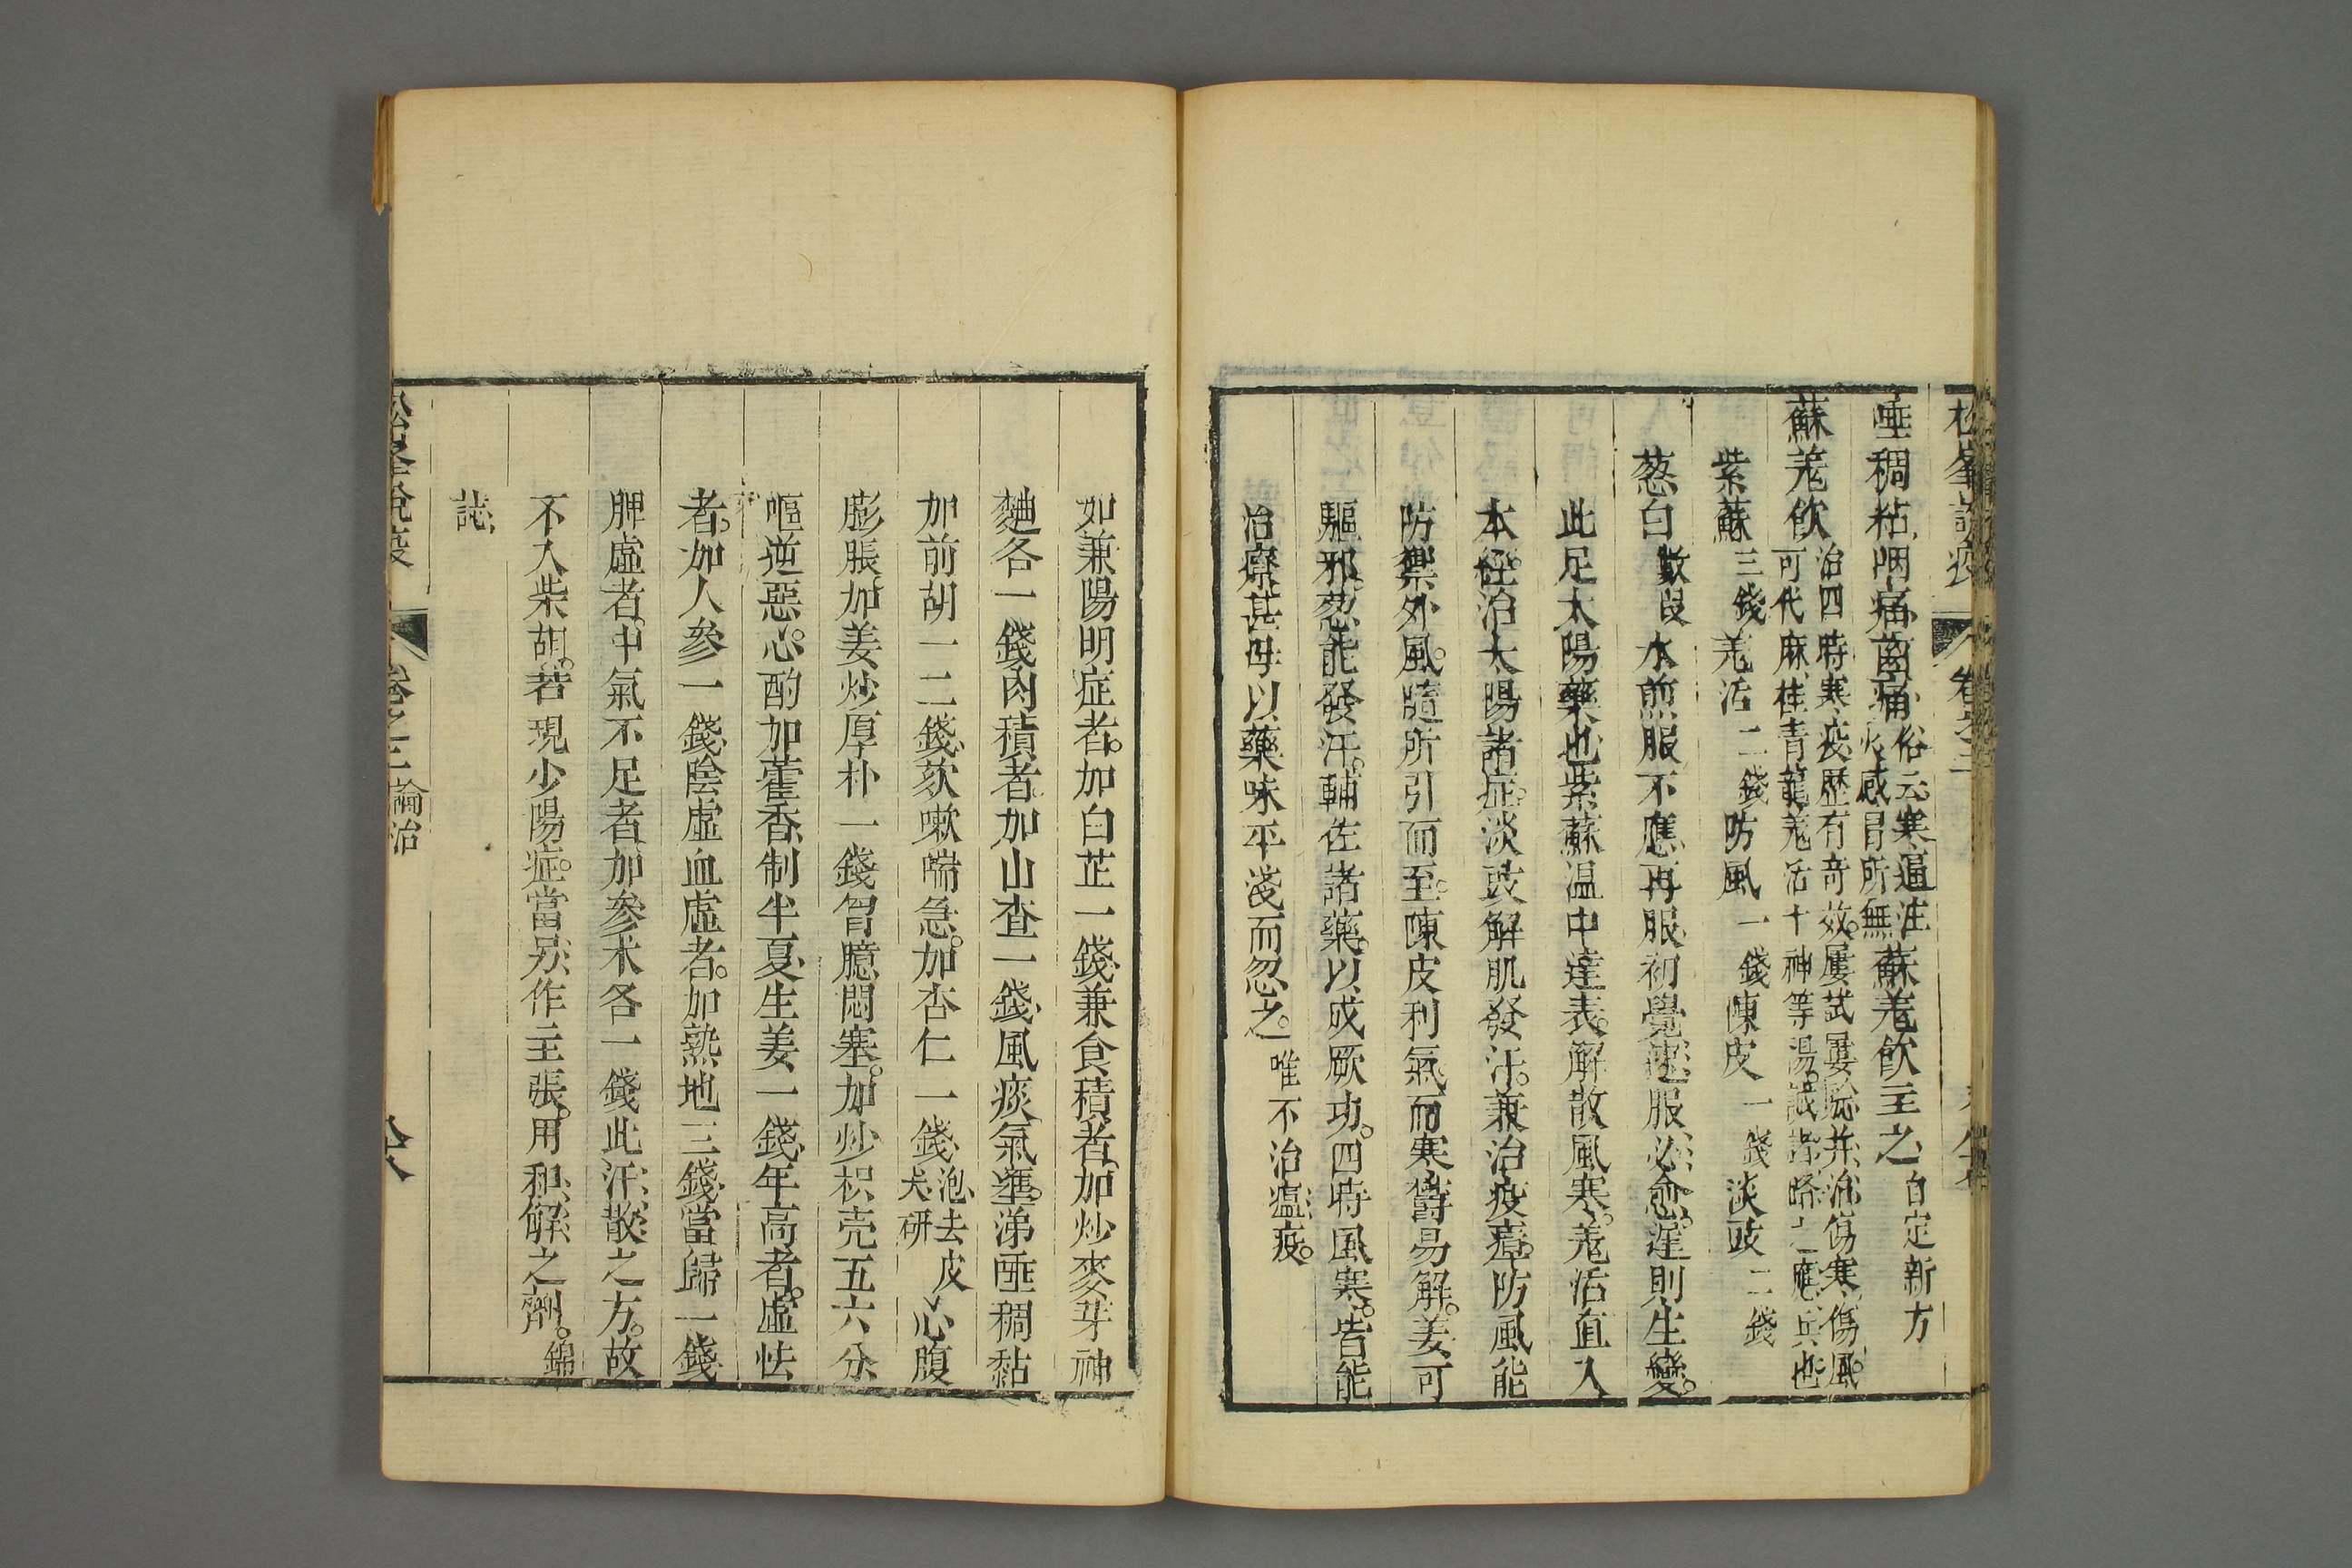 松峯說疫
卷之二
唾稠粘咽痛齒痛俗云寒逼注火感冒所無蘇羗飲主之自定新方
蘇羗飲治四時寒疫歷有奇效屢試屢驗并治傷寒傷風
可代麻桂青龍羗活十神等湯誠諸路之應兵也
紫蘇三錢羗活二錢防風一錢陳皮一錢淡豉二錢
葱白數段水煎服不應再服初覺速服必愈遲則生變
此足太陽藥也紫蘇温中達表解散風寒羗活直入
本經治太陽諸症淡豉解肌發汗兼治疫瘧防風能
防禦外風隨所引而至陳皮利氣而寒鬱易解姜可
驅邪葱能發汗輔佐諸藥以成厥功四時風寒皆能
治療甚毋以藥味平淺而忽之唯不治瘟疫
如兼陽明症者加白芷一錢兼食積者加炒麥芽神
麯各一錢肉積者加山查一錢風痰氣壅涕唾稠黏
加前胡一二錢欬嗽喘急加杏仁一錢泡去皮尖研心腹
膨脹加姜炒厚朴一錢胷臆悶塞加炒枳壳五六分
嘔逆惡心酌加藿香制半夏生姜一錢年高者虛怯
者加人參一錢陰虛血虛者加熟地三錢當歸一錢
脾虛者中氣不足者加參术各一錢此汗散之方故
不入柴胡若現少陽症當另作主張用和解之劑錦
誌
松峯說疫
卷之二論治